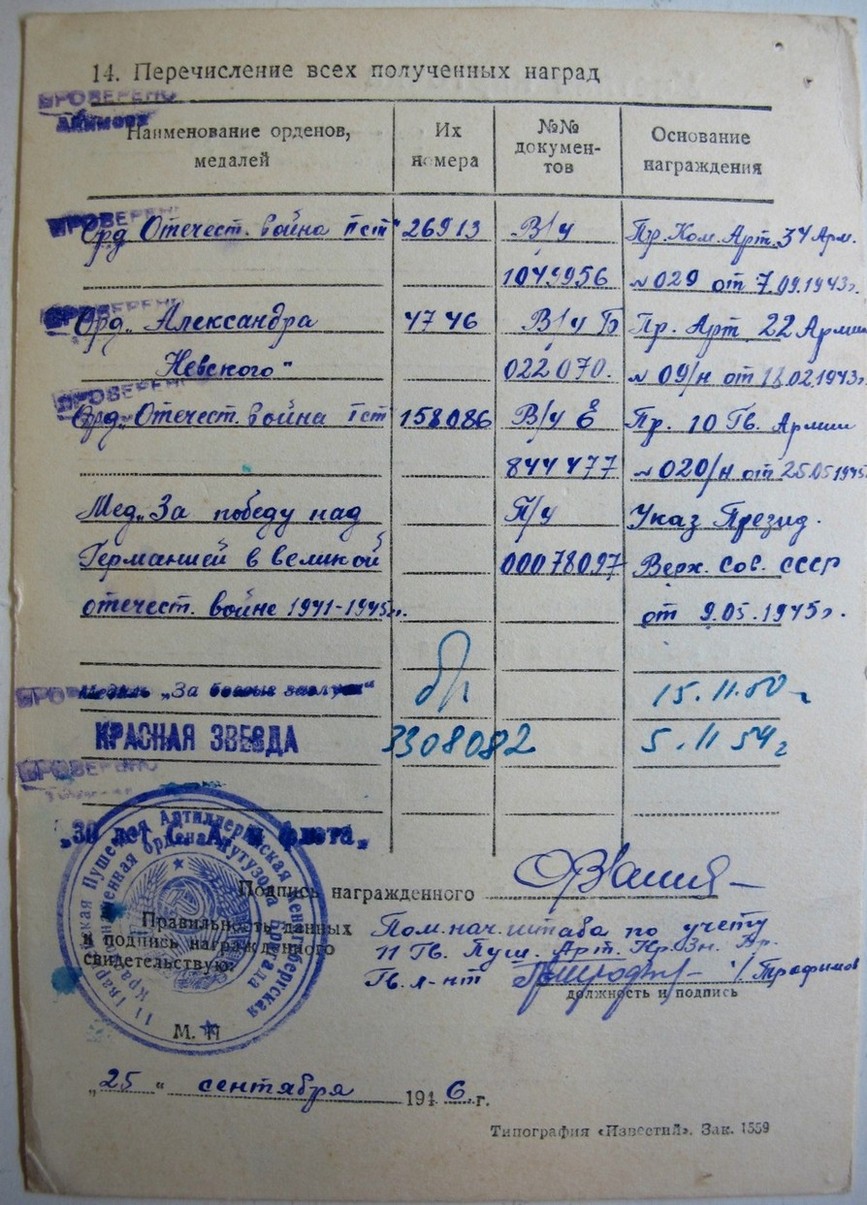 14. Перечисление всех полученных наград
ПРОВЕРЕНО
Наименование орденов, медалей
Их номера
№№ документов
Основание награждения
ПРОВЕРЕНО
Орд Отечест. война IIст" 26913 В/у Пр. Ком. Арт. 34 Арм.
1049956 №029 от 7.09.1943г.
ПРОВЕРЕНО
Орд „Александра 4746 В/у Б Пр. Арт 22 Армии
Невского" 022070. №09/н от 18.02.1943г.
ПРОВЕРЕНО
Орд „Отечест. война Iст" 158086 В/у Е Пр. 10 Гв. Армии
844477 №020/н от 25.05.1945
Мед „За победу над Т/у Указ Презид.
Германией в великой 00078097 Верх. Сов. СССР
отечест. войне 1941-1945гг. от 9.05.1945г.
ПРОВЕРЕНО
Медаль „За боевые заслуги" бн 15.11.50 г
КРАСНАЯ ЗВЕЗДА 3308082 5.11 54 г
ПРОВЕРЕНО
„30 лет С. А. и флота"
11 Гвардейская Пушечная Артиллерийская Кенигсбергская
Краснознаменная ордена Кутузова бригада
Подпись награжденного
Правильность данных Пом. нач. штаба по учету
и подпись награжденного 11 Гв. Пуш. Арт. Кр. Зн. Бр.
свидетельствую: Гв. л-нт /Трофимов
должность и подпись
М. П
„25" сентября 1946.г.
Типография «Известий». Зак. 1559